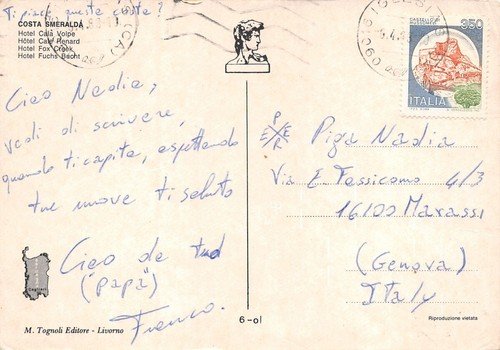 Ti piace questa costa?
COSTA SMERALDA
Hotel Cala Volpe
Hôtel Cale Renard
Hotel Fox Creek
Hotel Fuchs Bucht
Ciao Nadia,
vedi di scrivere,
quando ti capita, aspettando
tue nuove ti saluto
Ciao da
("papà")
Franco.
M. Tognoli Editore - Livorno
6-ol
350
ITALIA
PER
Piga Nadia
Via E. Tassicomo 4/3
16100 Marassi
(Genova)
Italy
Riproduzione vietata